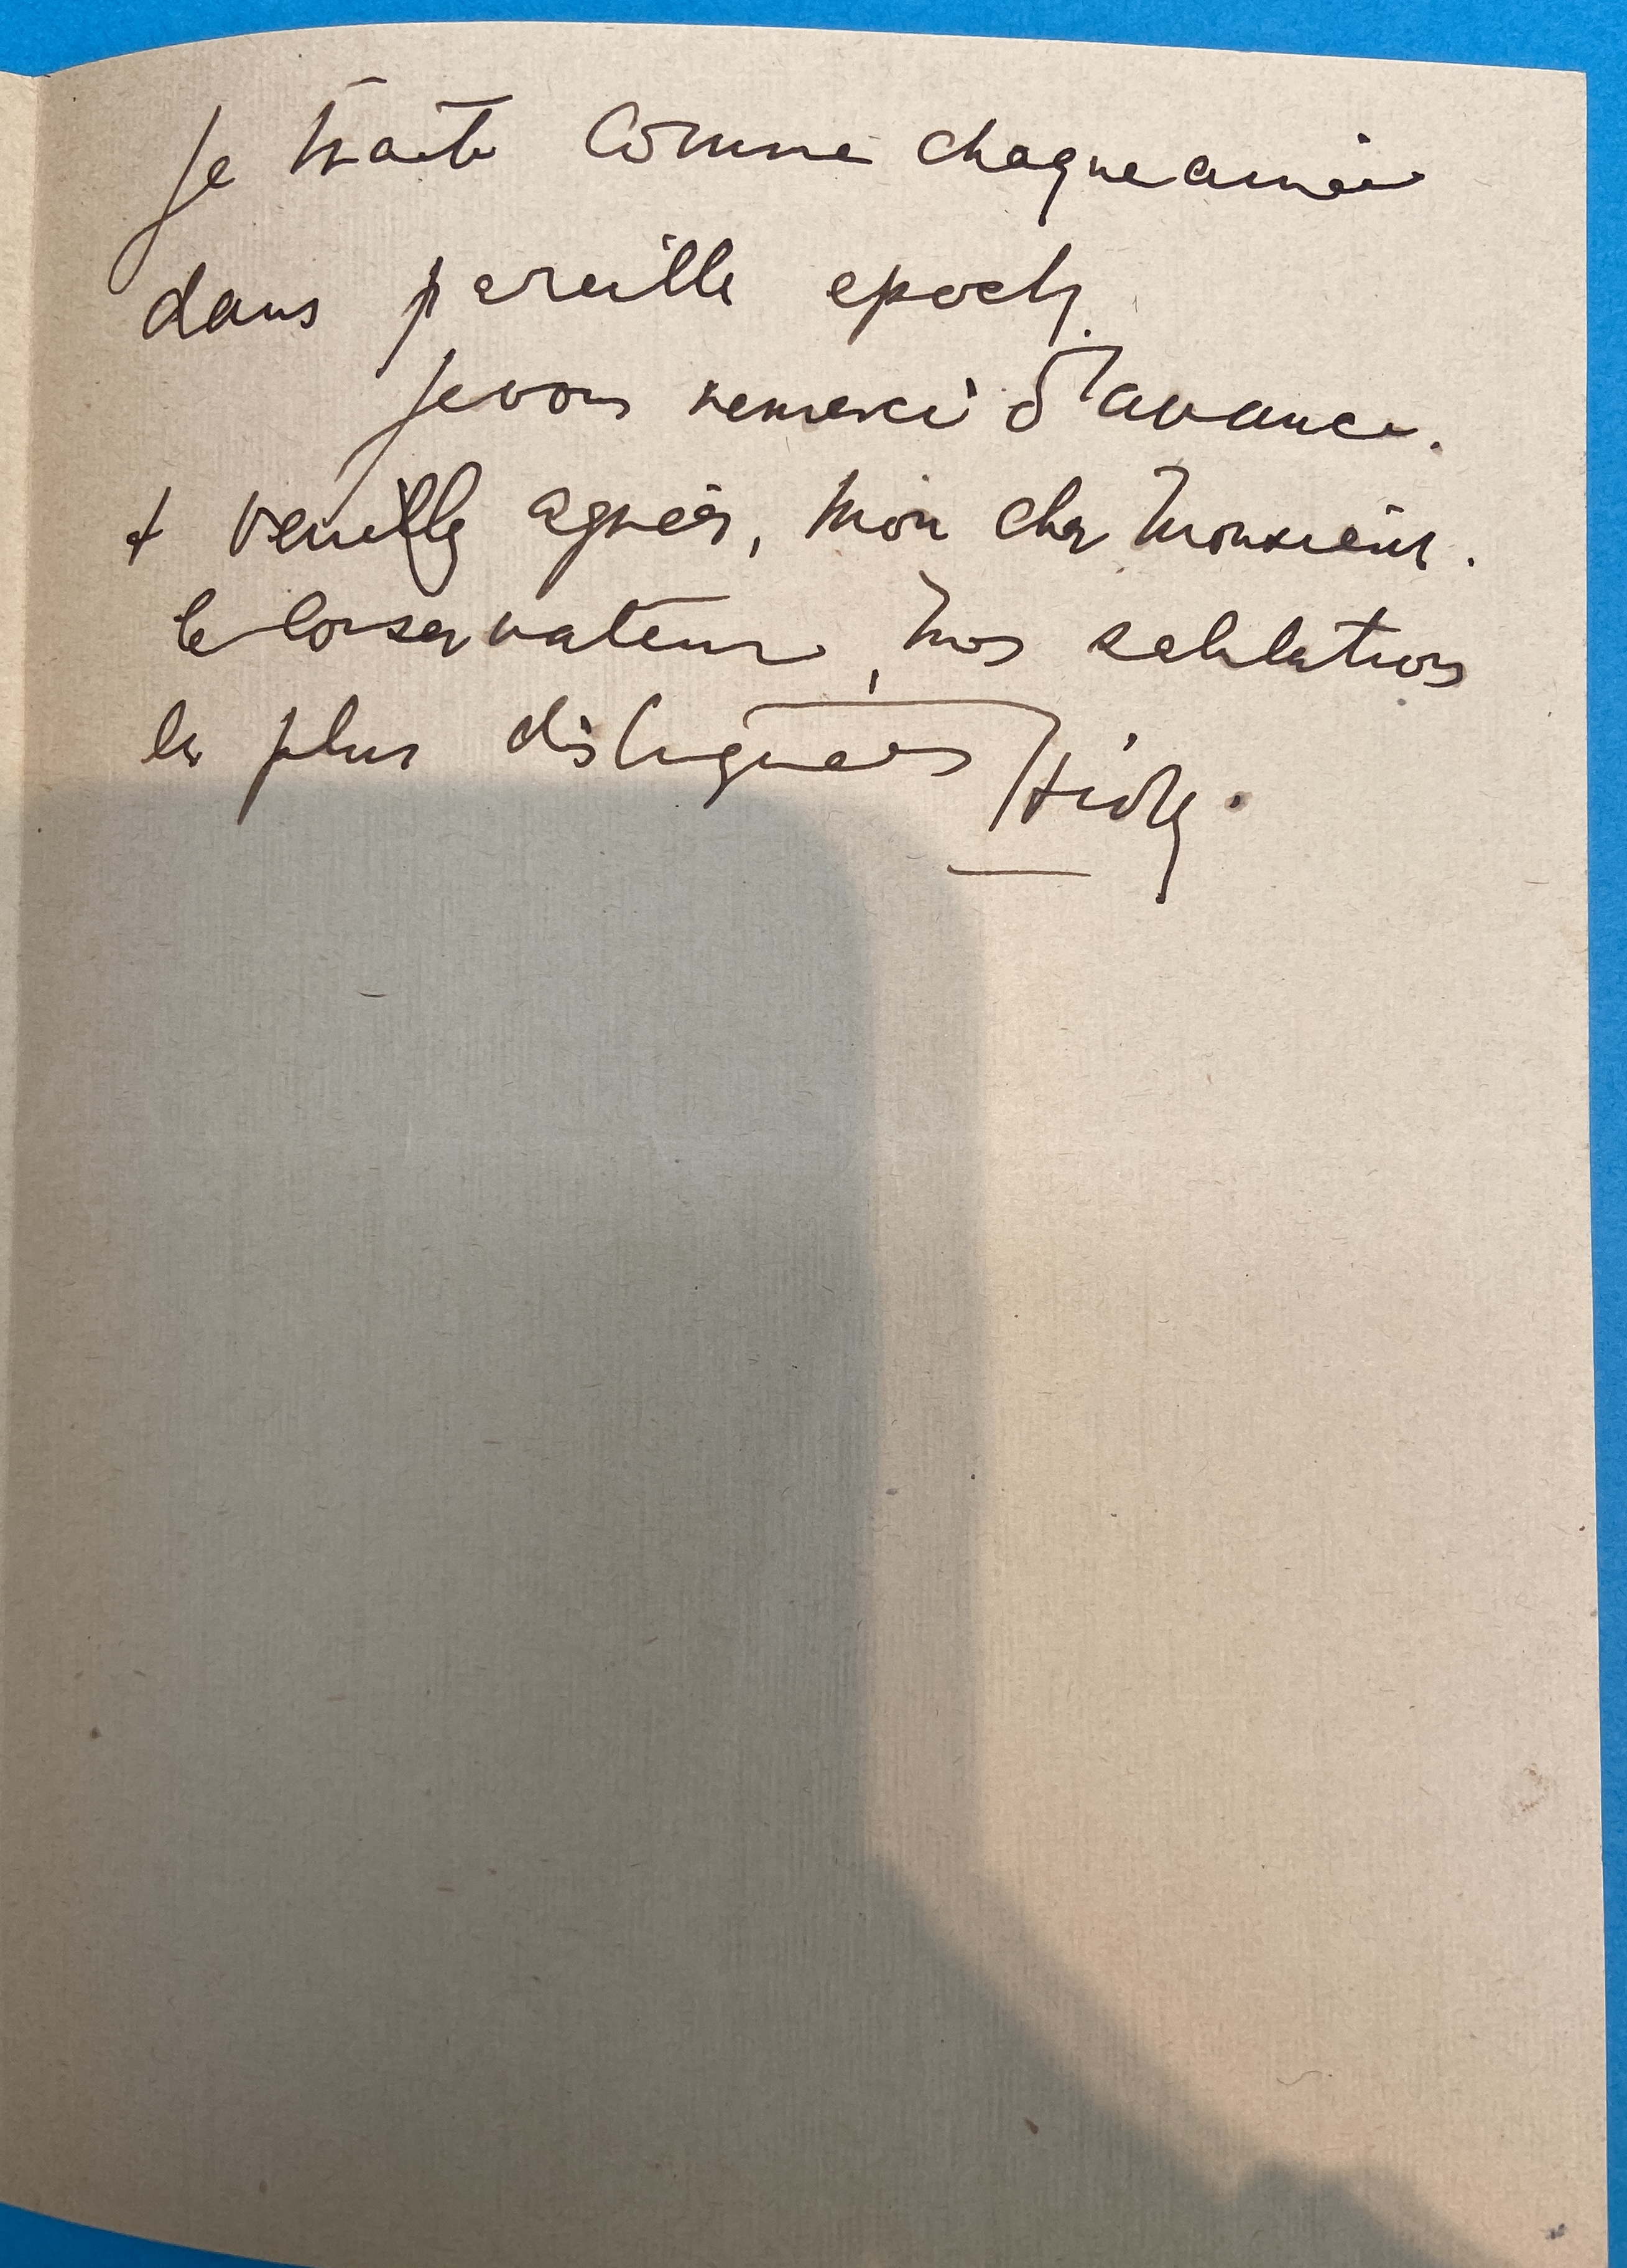 Je traite comme chaque année
dans pareille epoch.
Je vous remerci d'avance.
& veuillez agreér, mon cher Monsieur.
le Conservateur, mes
les plus distiguées